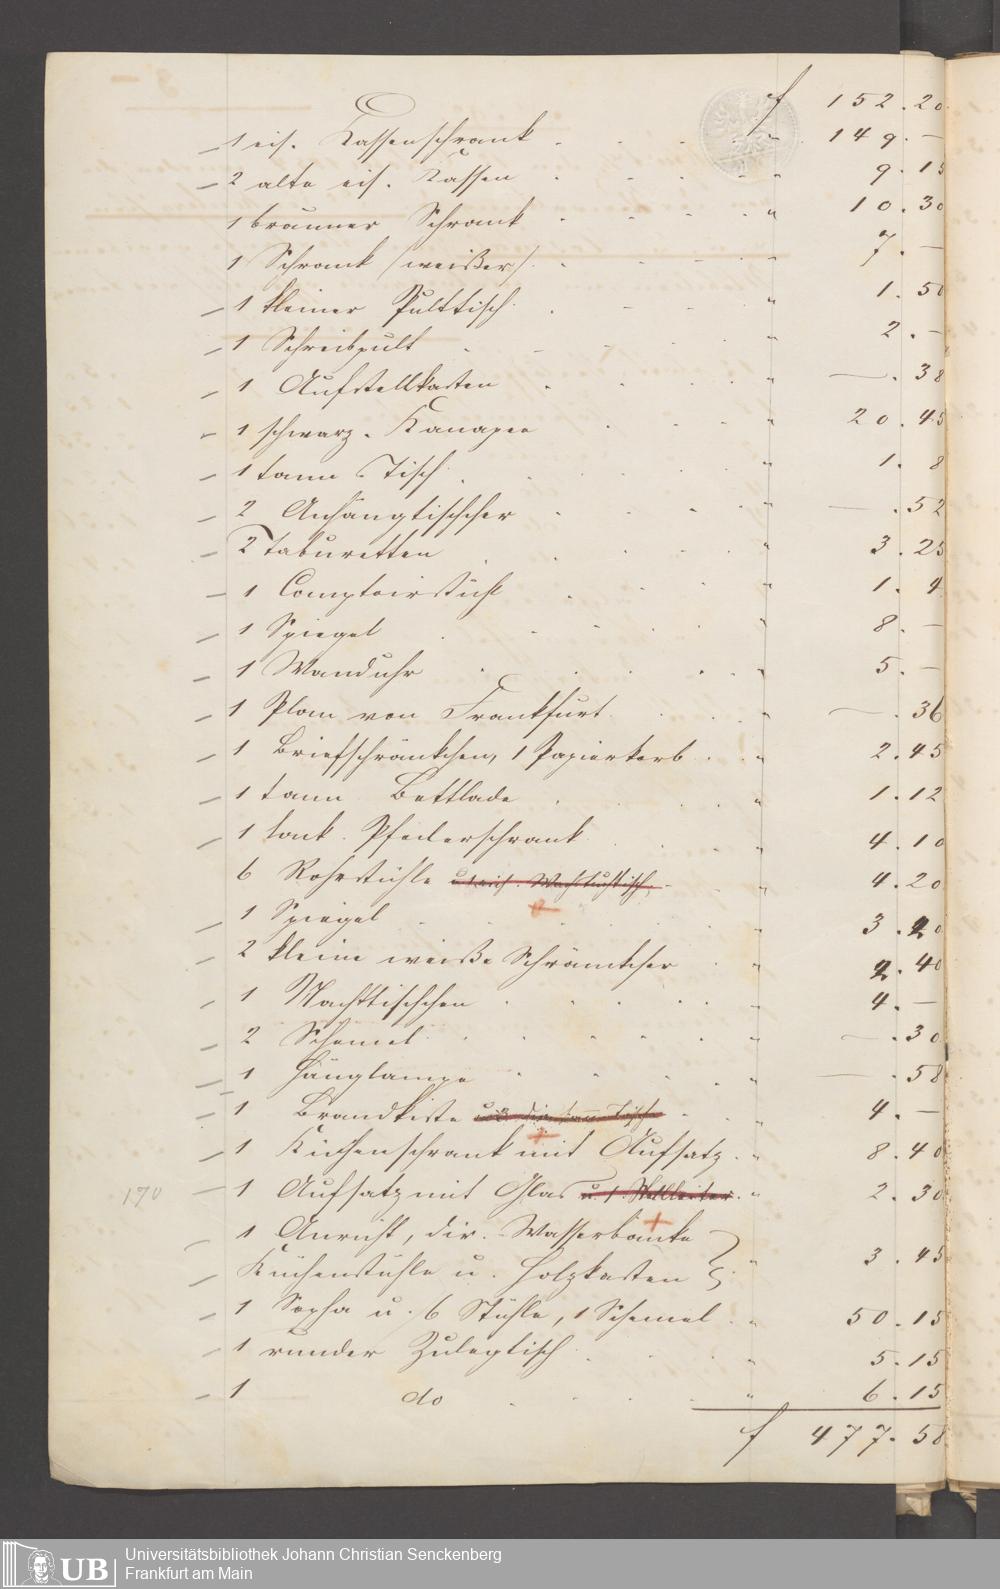 f 152.20
1 eis. Kassenschrank . . . . " 149.—
2 alte eis. Kassen . . . . " 9.15
1 brauner Schrank . . . . " 10.30
1 Schrank (weißer) . . . . " 7.—
1 kleiner Pulttisch . . . " 1.50
1 Schreibpult . . . . . " 2.—
1 Aufstellkasten . . . . " —.38
1 schwarz. Kanapee . . . " 20.45
1 tann Tisch . . . . . " 1. 8
2 Anhängtischcher . . . . " —.52
2 Taburetten . . . . . " 3.25
1 Comptoirstuhl . . . " 1. 4
1 Spiegel . . . . . " 8.—
1 Wanduhr . . . . . " 5.—
1 Plan von Frankfurt . . . " —.36
1 Briefschränkchen, 1 Papierkorb . . " 2.45
1 tann Bettlade . . . . " 1.12
1 lack. Pfeilerschrank . . . " 4.10
6 Rohrstühle . . " 4.20
1 Spiegel . . . . . " 3.20
2 kleine weiße Schränkcher . " 2.40
1 Nachttischchen . . . . . " 4.—
2 Schemel . . . . . " —.30
1 Hänglampe . . . . " —.58
1 Brandkiste . . " 4.—
1 Küchenschrank mit Aufsatz . " 8.40
170 1 Aufsatz mit Glas . " 2.30
1 Anricht, div. Wasserbänke
Küchenstühle u. Holzkasten } . " 3.45
1 Sopha u. 6 Stühle, 1 Schemel . " 50.15
1 runder Zulegtisch . . . " 5.15
1 do . . . . " 6.15
f 477.58
UB Universitätsbibliothek Johann Christian Senckenberg
Frankfurt am Main